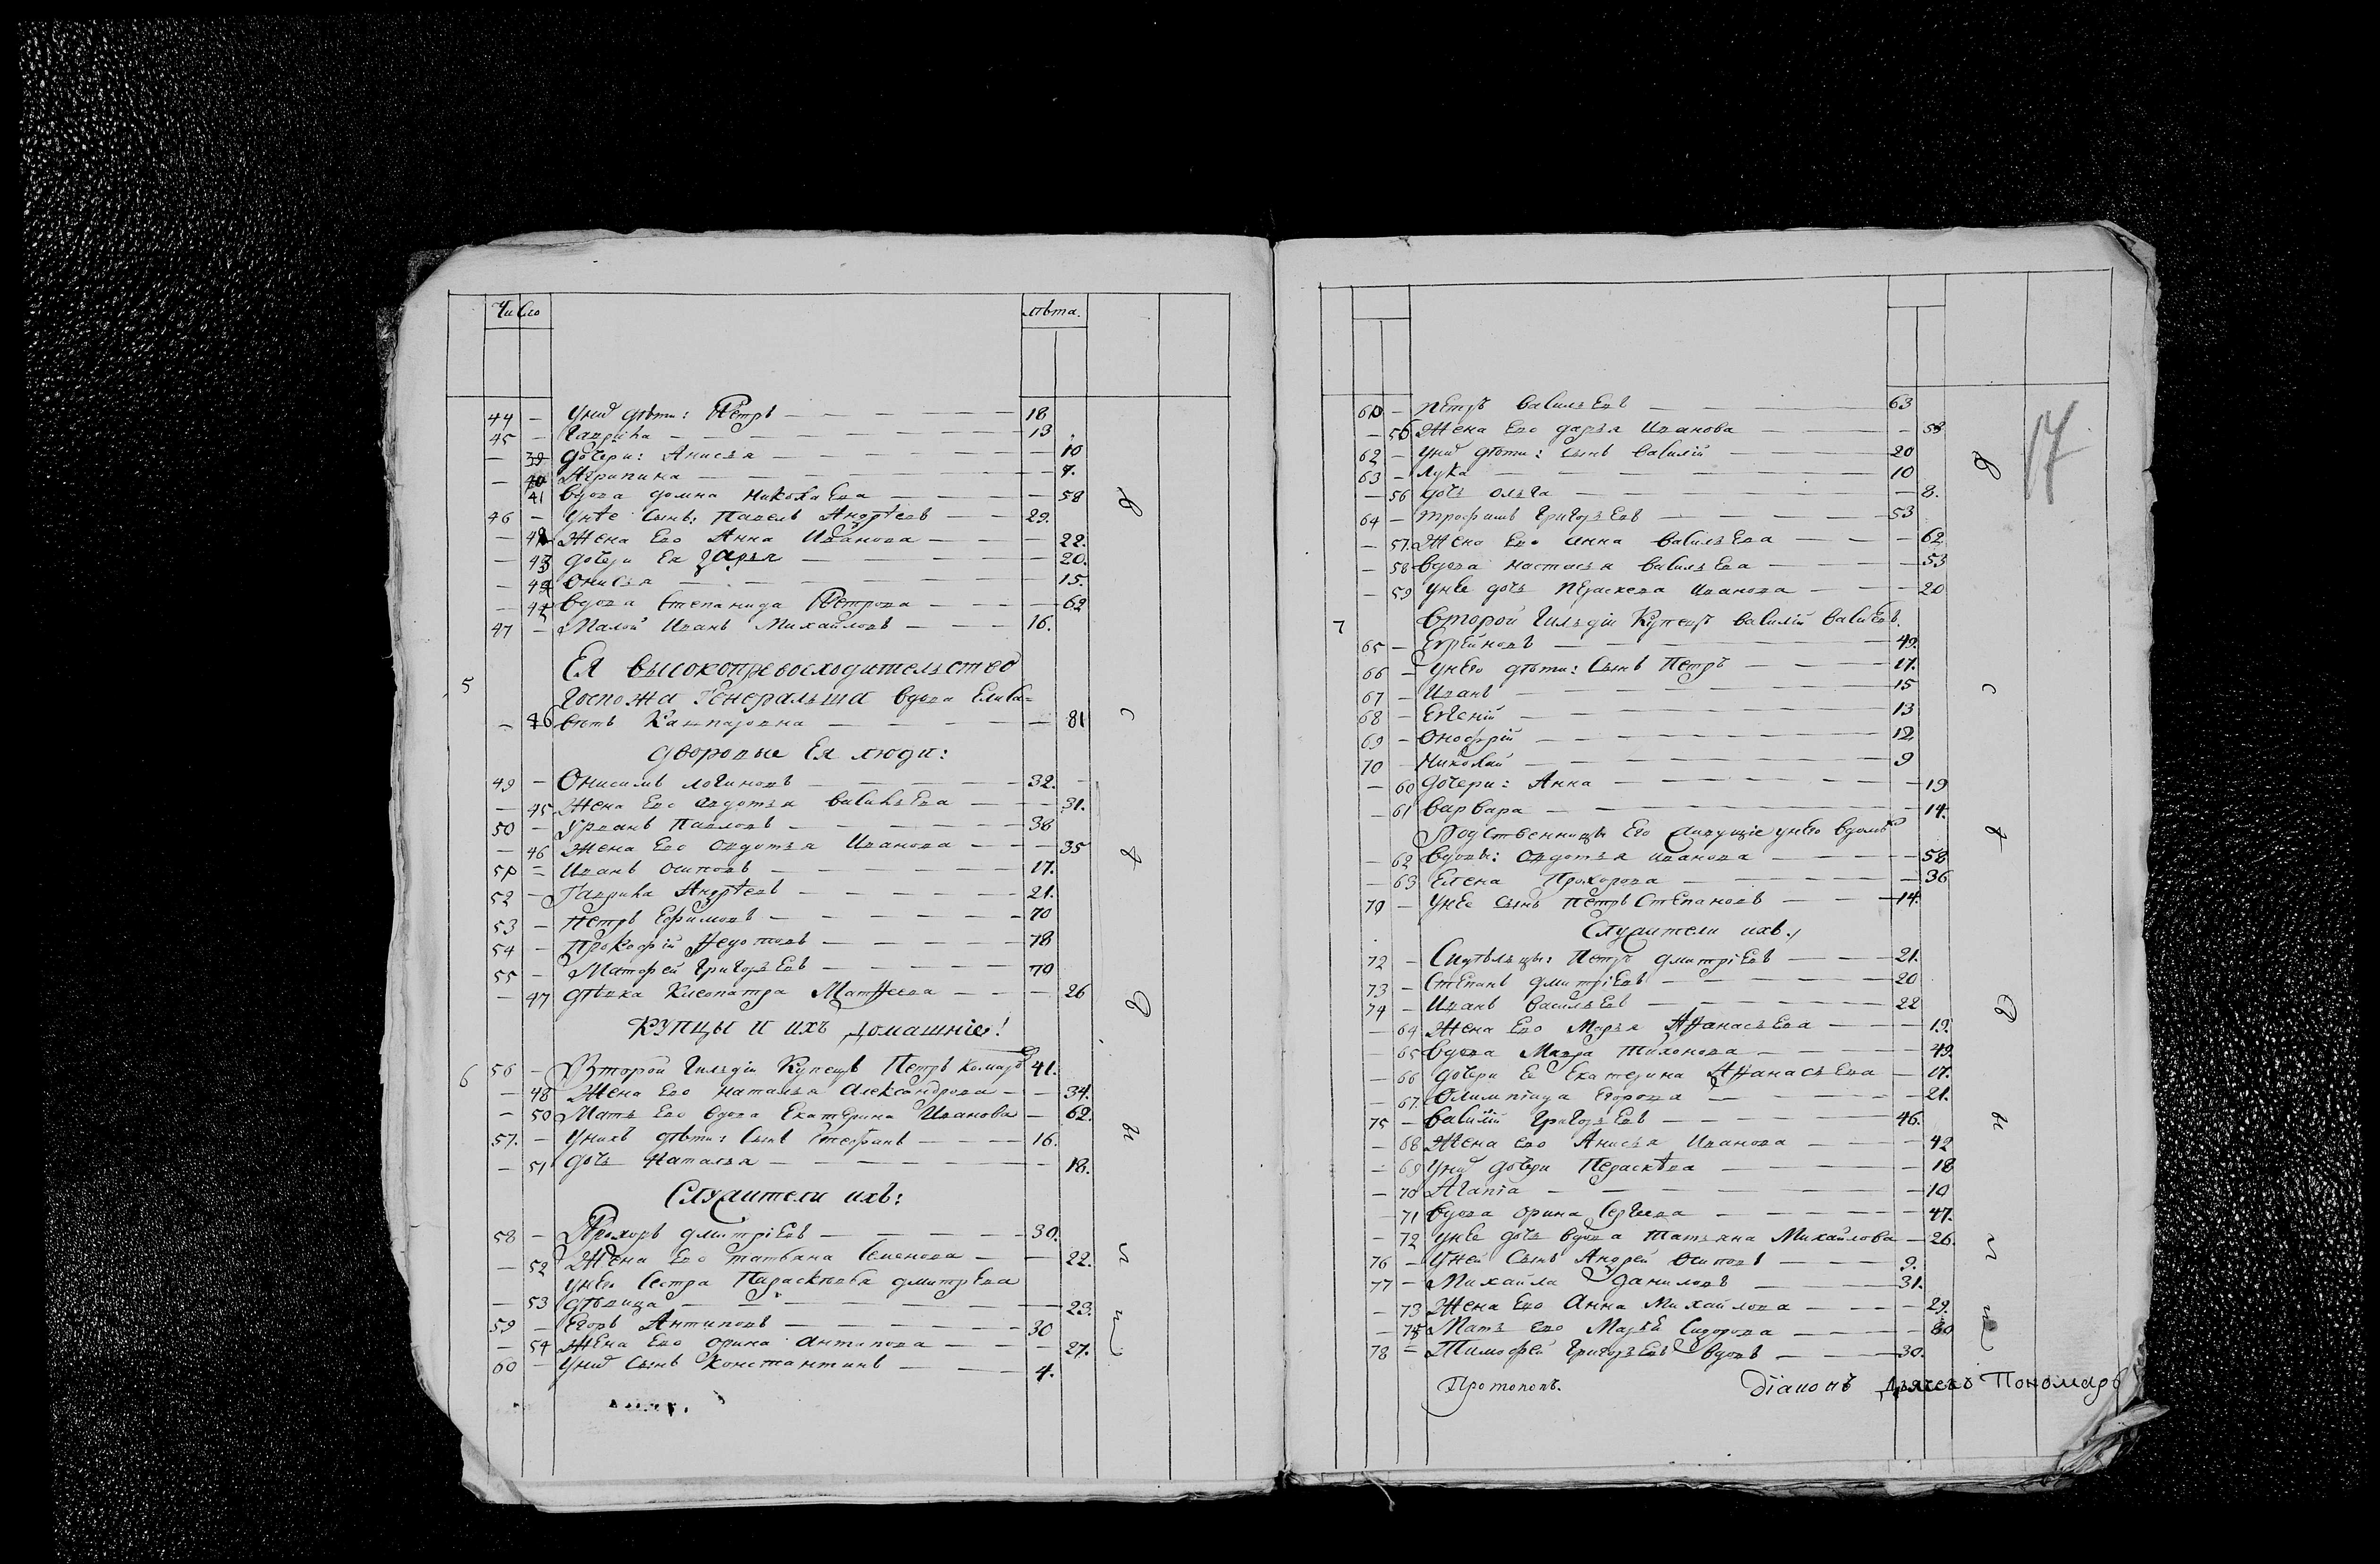 Число лѣта.
44 - Унихъ дѣти: Петръ - 18
45 - Гаврила - 13
- 39 дочери: Анисья - 10
- 40 Агрипина - 7.
41 вдова домна николаева - 58
46 - Унѣе сынъ: Павелъ Андрѣевъ - 29.
- 42 Жена Ево Анна Иванова - 22.
- 43 дочери Ея дарья - 20.
- 44 Онисья - 15.
- 45 вдова степанида Петрова - 62
47 - Малой Иванъ Михайловъ - 16.
5 Ея высокопревосходительство
госпожа Генеральша вдова Елиса=
- 46 ветъ Кашпаровна - 81
дворовые Ея люди:
49 - Онисимъ логиновъ - 32.
- 45 Жена Ево авдотья васильева - 31.
50 - Урванъ Павловъ - 36
- 46 Жена Ево авдотья Иванова - 35
51 - Иванъ осиповъ - 17.
52 - Гаврила Андрѣевъ - 21.
53 - Петръ Ефимовъ - 70
54 - Прокофій Федотовъ - 78
55 - Матфей григорьевъ - 70
- 47 дѣвка Клеопатра Матѳеева - 26
Купцы и ихъ домашніе!
6 56 - Второй гильдіи Купецъ Петръ Комаровъ 41.
- 48 Жена Ево наталья Александрова - 34.
- 50 Мать Ево вдова Екатерина Иванова - 62.
57. - Унихъ дѣти: сынъ стефанъ - 16.
- 51 дочь Наталья - 18.
Служители ихъ:
58 - Прохоръ дмитріевъ - 30.
- 52 Жена Ево татьяна семенова - 22.
унѣго сестра Параскѣева дмитрѣва
- 53 дѣвица - 23.
59 - Егоръ Антиповъ - 30
- 54 Жена Ево орина антипова - 27.
60 - Унихъ сынъ Константинъ - 4.
17
61 - Петръ васильевъ - 63
- 55 Жена Ево дарья Иванова - 58
62 - Унихъ дѣти: сынъ василій - 20
63 - Лука - 10
- 56 дочь ольга - 8.
64 - трофимъ григорьевъ - 53
- 57. Жена Ево анна васильева - 62
- 58 вдова настасья васильева - 53
- 59 унѣе дочь Пераскева иванова - 20
7 второй гильдіи Купецъ василій васильевъ
65 - Евреиновъ - 49.
66 - унѣго дѣти: сынъ Петръ - 17.
67 - Иванъ - 15
68 - Евгеній - 13
69 - Онофрій - 12
70 - Николай - 9
- 60 дочери: Анна - 19
- 61 варвара - 14.
Родственницы Его живущіе унѣго вдомѣ
- 62 вдовы: авдотья иванова - 58
- 63 Елена Прохорова - 36
71 - Унѣе сынъ Петръ степановъ - 14.
Служители ихъ.
72 - Сидѣльцы: Петръ дмитріевъ - 21.
73 - Степанъ дмитріевъ - 20
74 - Иванъ васильевъ - 22
- 64 Жена Ево Марья Аѳанасьева - 19.
- 65 вдова Мавра тихонова - 49.
- 66 дочери Ее Екатерина Аѳанасьева - 17.
- 67. Олимпіада Егорова - 21.
75 - василій григорьевъ - 46.
- 68 Жена ево Анисья Иванова - 42
- 69 Унихъ дочери Пераскѣва - 18
- 70 Агапіа - 10
- 71 вдова орина сергеева - 47.
- 72 Унѣе дочь вдова татьяна Михайлова - 26.
76 - Уней сынъ Андрей осиповъ - 9.
77 - Михайла даниловъ - 31.
- 73 Жена Ево Анна Михайлова - 29.
- 75 Мать ево Марья сидорова - 60
78 - Тимофей григорьевъ вдовъ - 30.
Протопопъ. Діаконъ Дьячекъ Пономарь